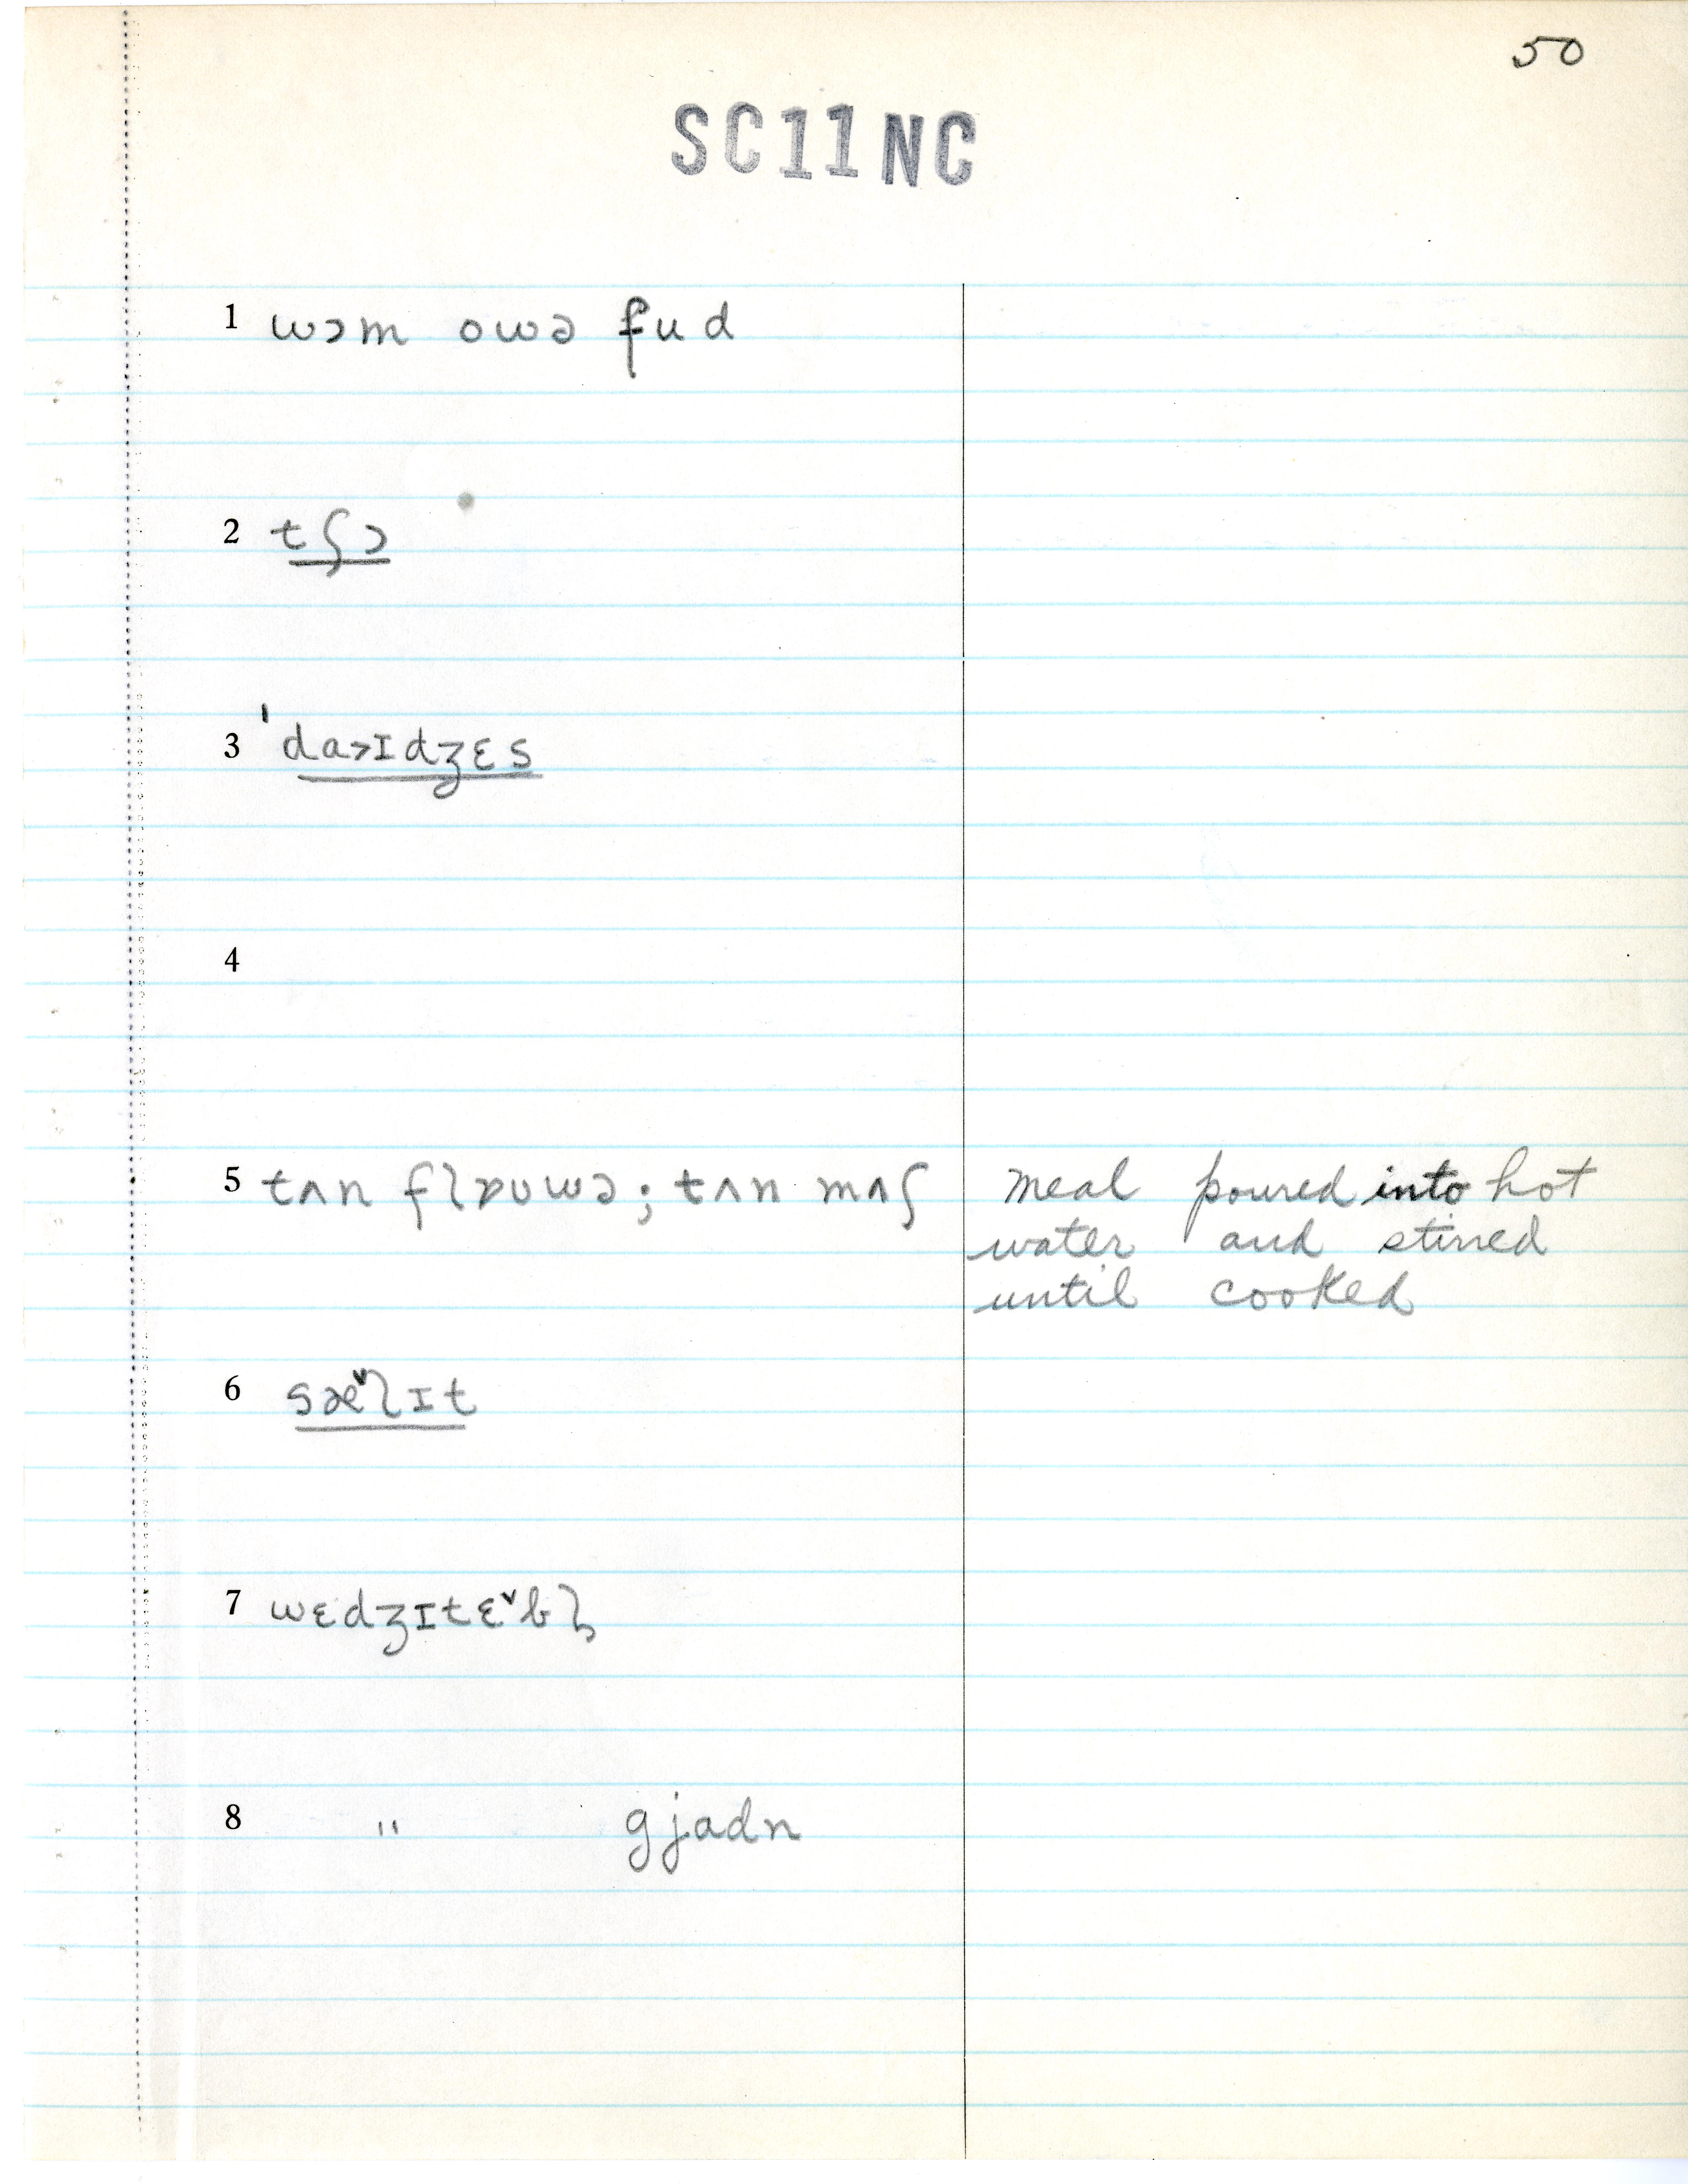 50
SC11NC
1 wɔm owə fud
2 tʃɔ
3 ˈda>ɪdʒɛs
4
5 tʌn flɒʊwə; tʌn mʌʃ meal poured into hot
water and stirred
until cooked
6 sæ˅lɪt
7 wɛdʒɪtɛ˅bḷ
8 " gjadn